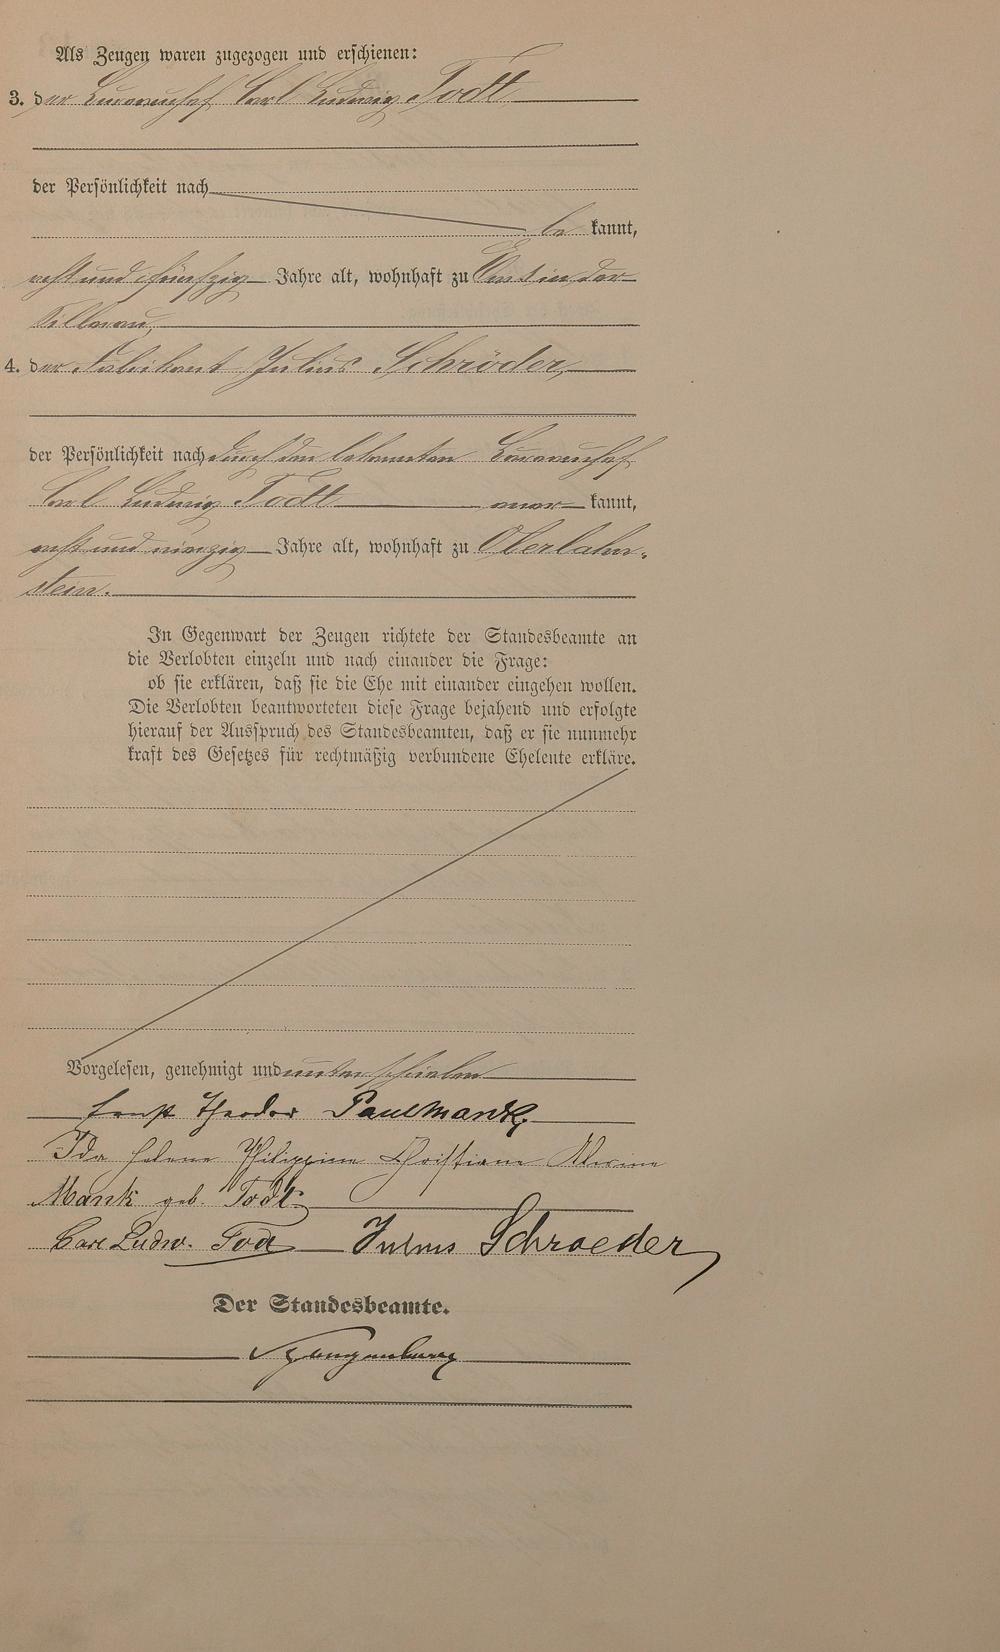 Als Zeugen waren zugezogen und erschienen:
3. der Carl Ludwig Todt
der Persönlichkeit nach
be kannt,
acht und fünfzig Jahre alt, wohnhaft zu Ems in der
Silberau,
4. der Fabrikant Julius Schröder,
der Persönlichkeit nach durch den bekannten
Carl Ludwig Todt aner kannt,
acht und vierzig Jahre alt, wohnhaft zu Oberlahn-
stein.
In Gegenwart der Zeugen richtete der Standesbeamte an
die Verlobten einzeln und nach einander die Frage:
ob sie erklären, daß sie die Ehe mit einander eingehen wollen.
Die Verlobten beantworteten diese Frage bejahend und erfolgte
hierauf der Ausspruch des Standesbeamten, daß er sie nunmehr
kraft des Gesetzes für rechtmäßig verbundene Eheleute erkläre.
Vorgelesen, genehmigt und unterschrieben
Ernst Theodor Paul Mank,
Ida Helene Philippine Christiane
Mank geb. Todt
Carl Ludw. Todt Julius Schroeder
Der Standesbeamte.